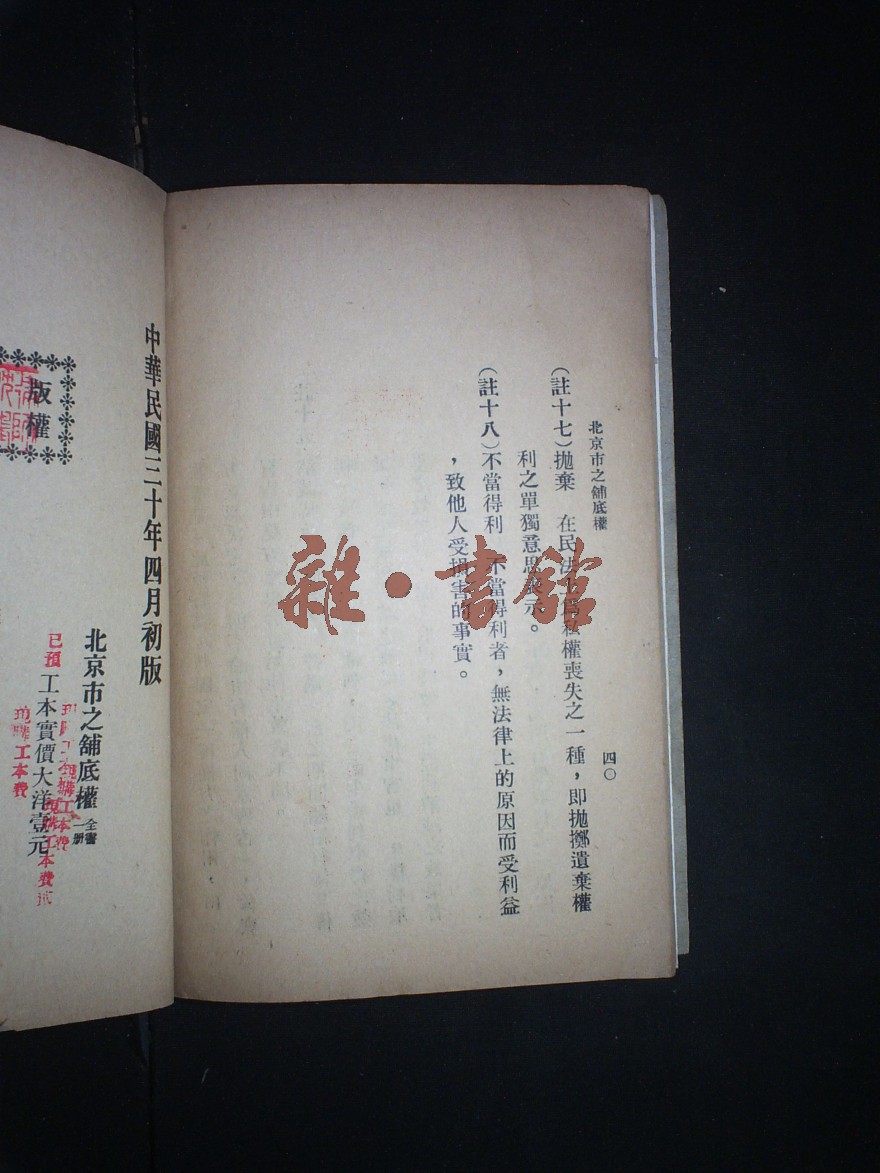 北京市之舖底權
四〇
(註十七)拋棄　在民法上爲私權喪失之一種，即拋擲遺棄權
利之單獨意思表示。
(註十八)不當得利　不當得利者，無法律上的原因而受利益
，致他人受損害的事實。
雜·書館
中華民國三十年四月初版
北京市之舖底權 全書一册
工本實價大洋壹元
已預
購工本費
工本費貳
工本費
版權